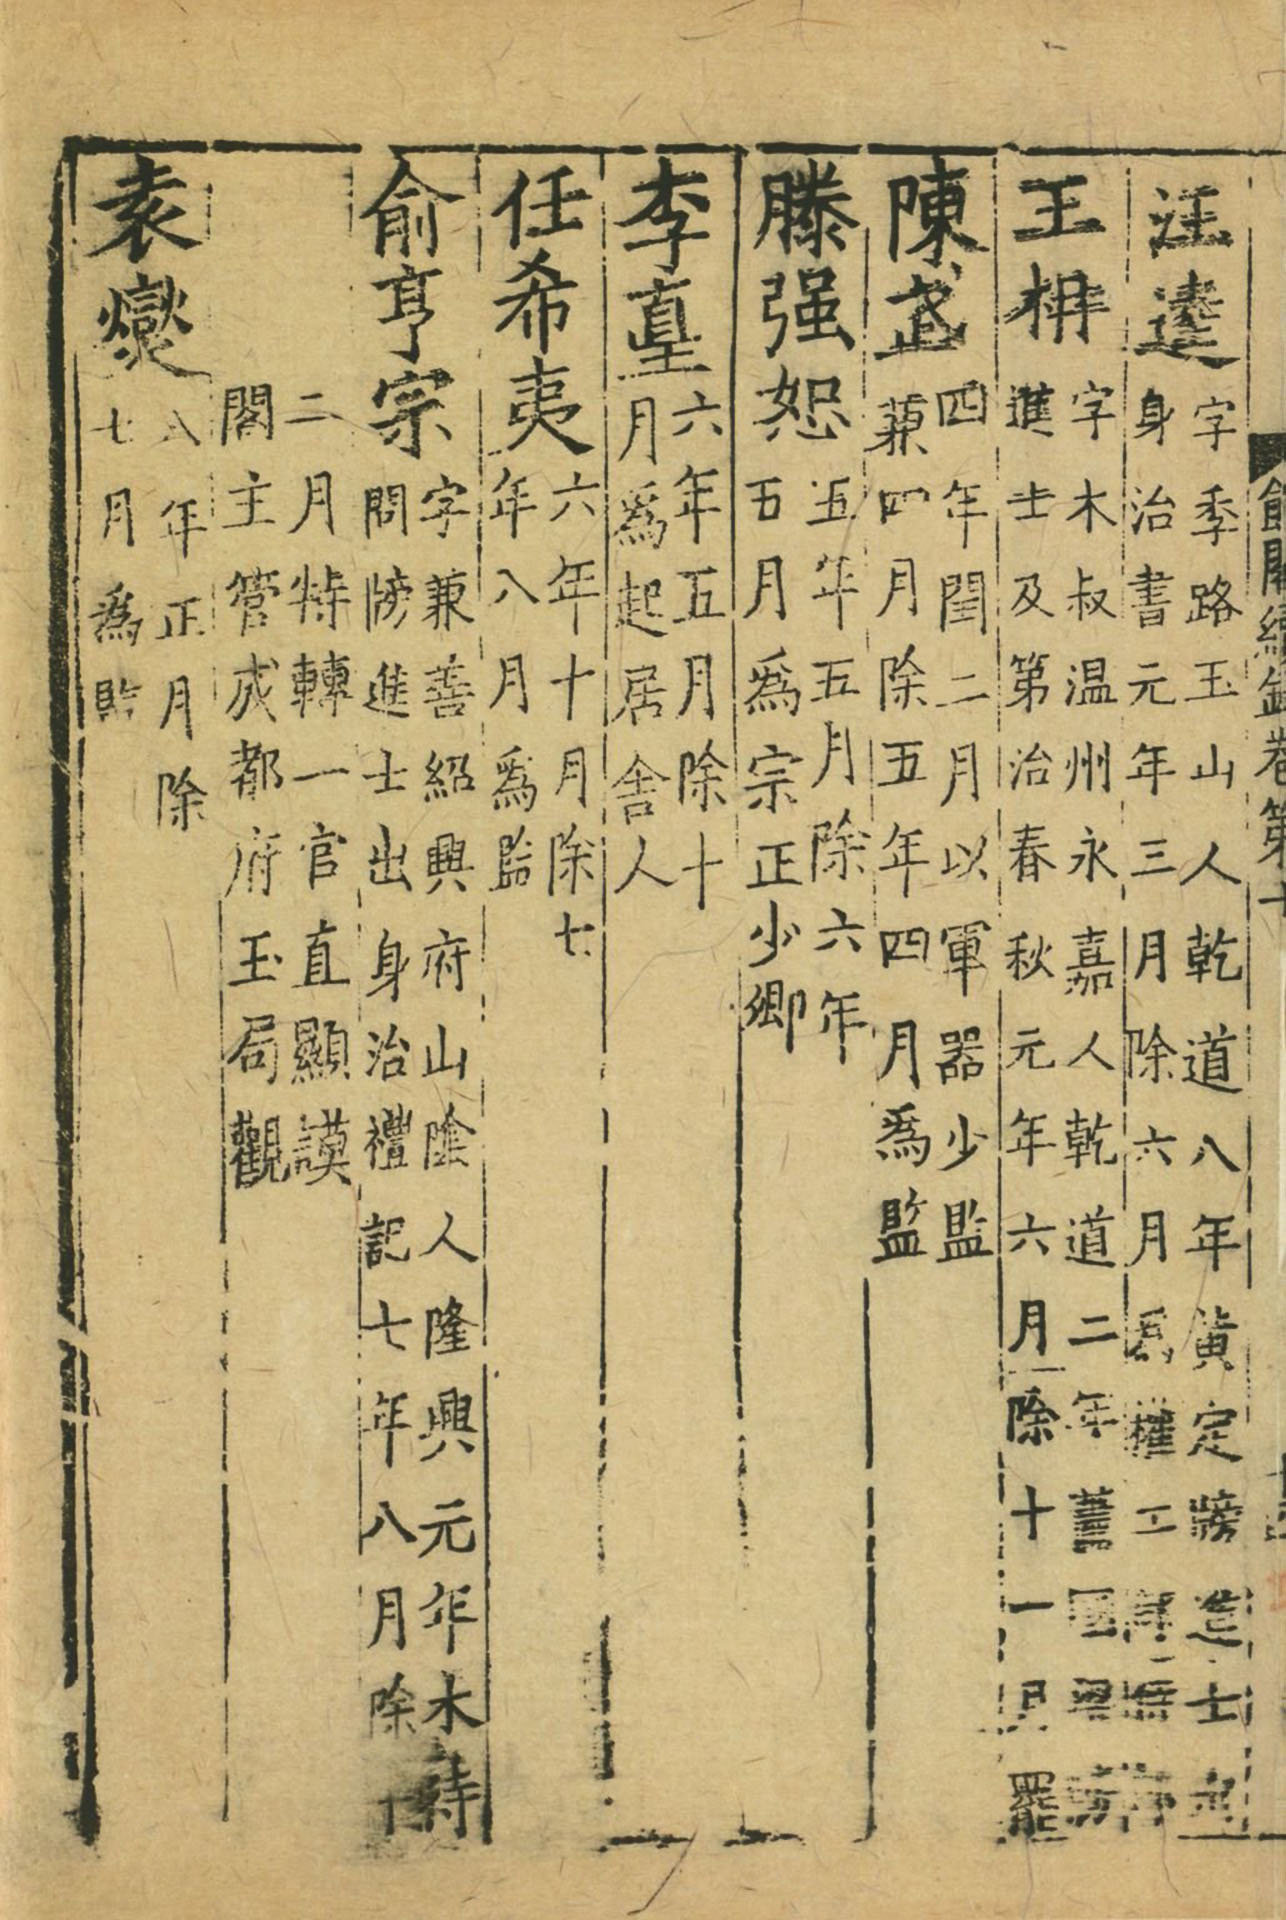 館閣續錄卷第十
汪逵
字季路玉山人乾道八年黃定牓進士出
身治書元年三月除六月爲權工部
王枏
字木叔温州永嘉人乾道二年蕭國梁牓
進士及第治春秋元年六月除十一月罷
陳武
四年閏二月以軍器少監
兼四月除五年四月爲監
滕强恕
五年五月除六年
五月爲宗正少卿
李𡌴
六年五月除十
月爲起居舍人
任希夷
六年十月除七
年八月爲監
俞亨宗
字兼善紹興府山陰人隆興元年木待
問牓進士出身治禮記七年八月除十
二月特轉一官直顯謨
閣主管成都府玉局觀
袁燮
八年正月除
七月爲監